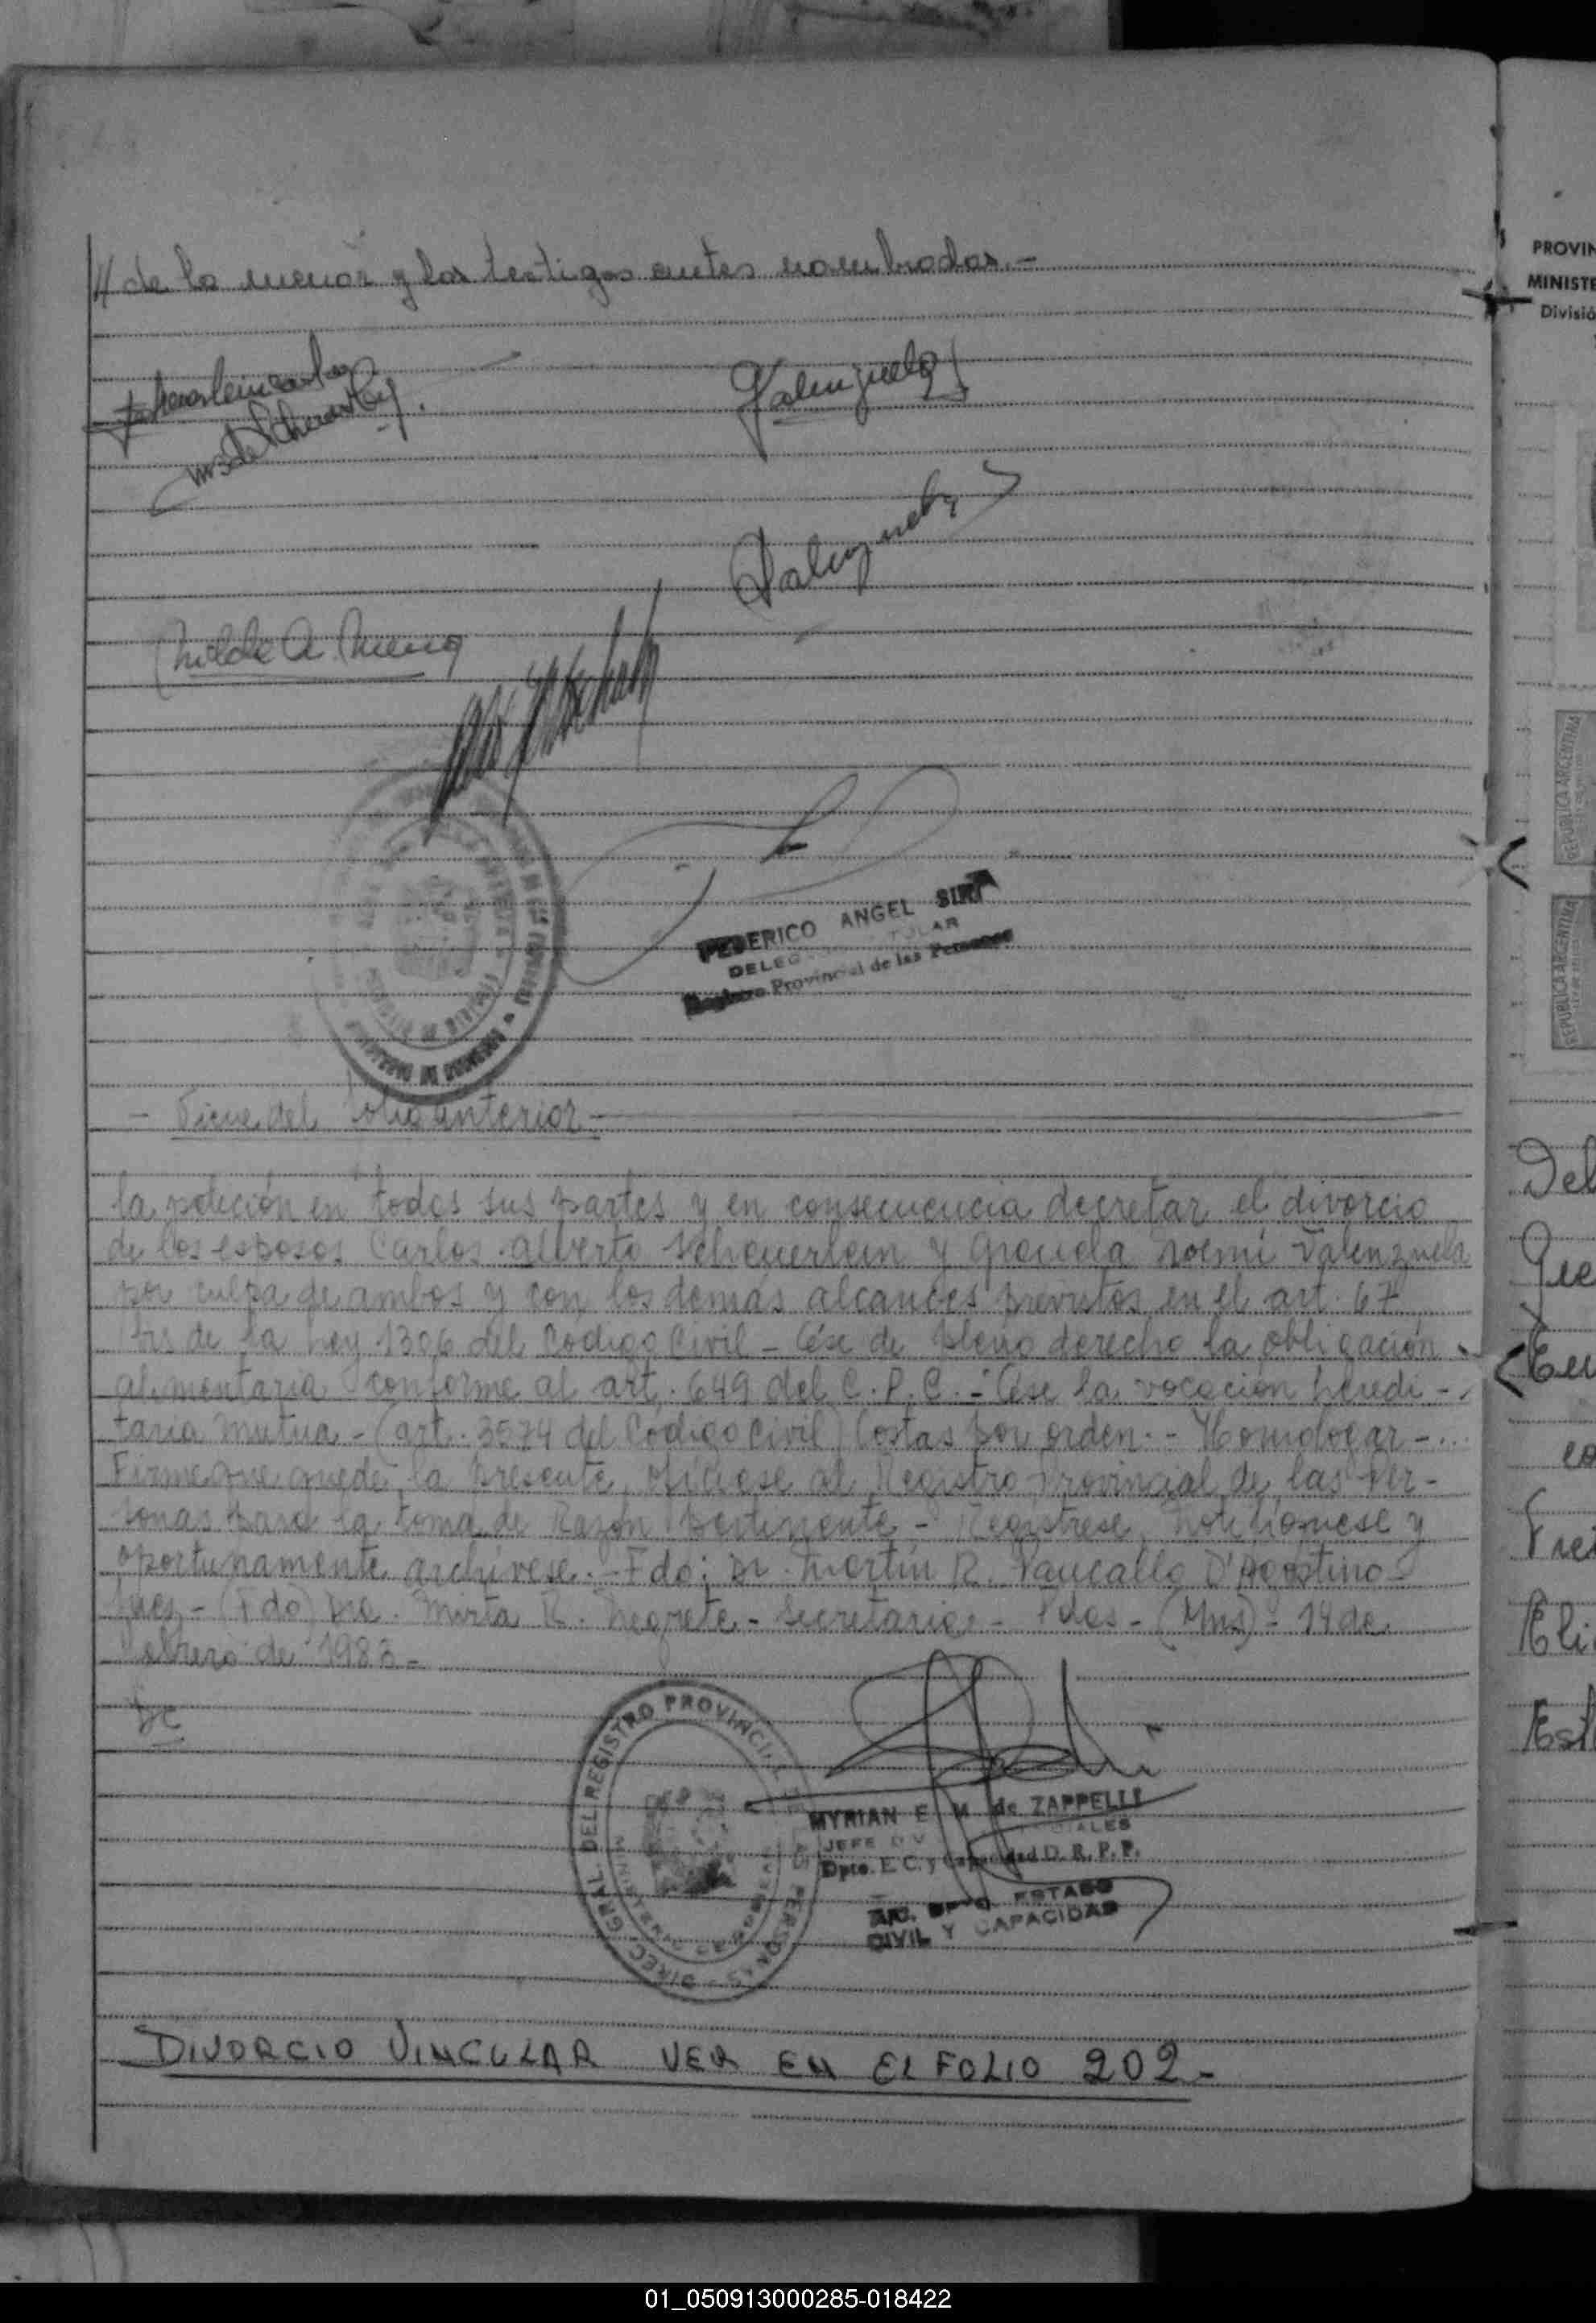 // de la menor y los testigos antes nombrados.-
Valenzuela
Valenzuela
Nilda A.
FEDERICO ANGEL SIRI
Registro Provincial de las Personas
- Viene del folio anterior -
la petición en todas sus partes y en consecuencia decretar el divorcio
de los esposos Carlos Alberto Scheuerlein y Graciela Noemí Valenzuela
por culpa de ambos y con los demás alcances previstos en el art. 67
bis de la Ley 1306 del Codigo Civil - Cése de pleno derecho la obligación
alimentaria conforme al art. 649 del C.P.C. - Cése la vocación heredi-
taria mutua - (art. 3574 del Código Civil) Costas por orden. - Homologar - ...
Firme que quede la presente, ofíciese al Registro Provincial de las Per-
sonas para la toma de Razón pertinente - Regístrese, notifíquese y
oportunamente archívese. - Fdo: Dr. Martín R. D'Agostino -
Juez - (Fdo) Dra. Mirta R. Negrete - Secretaria - Pdas - (Mns) - 14 de
Febrero de 1983 -
DIREC. GRAL. DEL REGISTRO PROVINCIAL DE PERSONAS
MYRIAN E. M. de ZAPPELLI
JEFE DIV
Dpto. E. C. y Capacidad D. R. P. P.
A/C. DPTO. ESTADO
CIVIL Y CAPACIDAD
DIVORCIO VINCULAR VER EN EL FOLIO 202.-
PROVIN
MINISTE
Divisió
REPUBLICA ARGENTINA
REPUBLICA ARGENTINA
Del
01_050913000285-018422